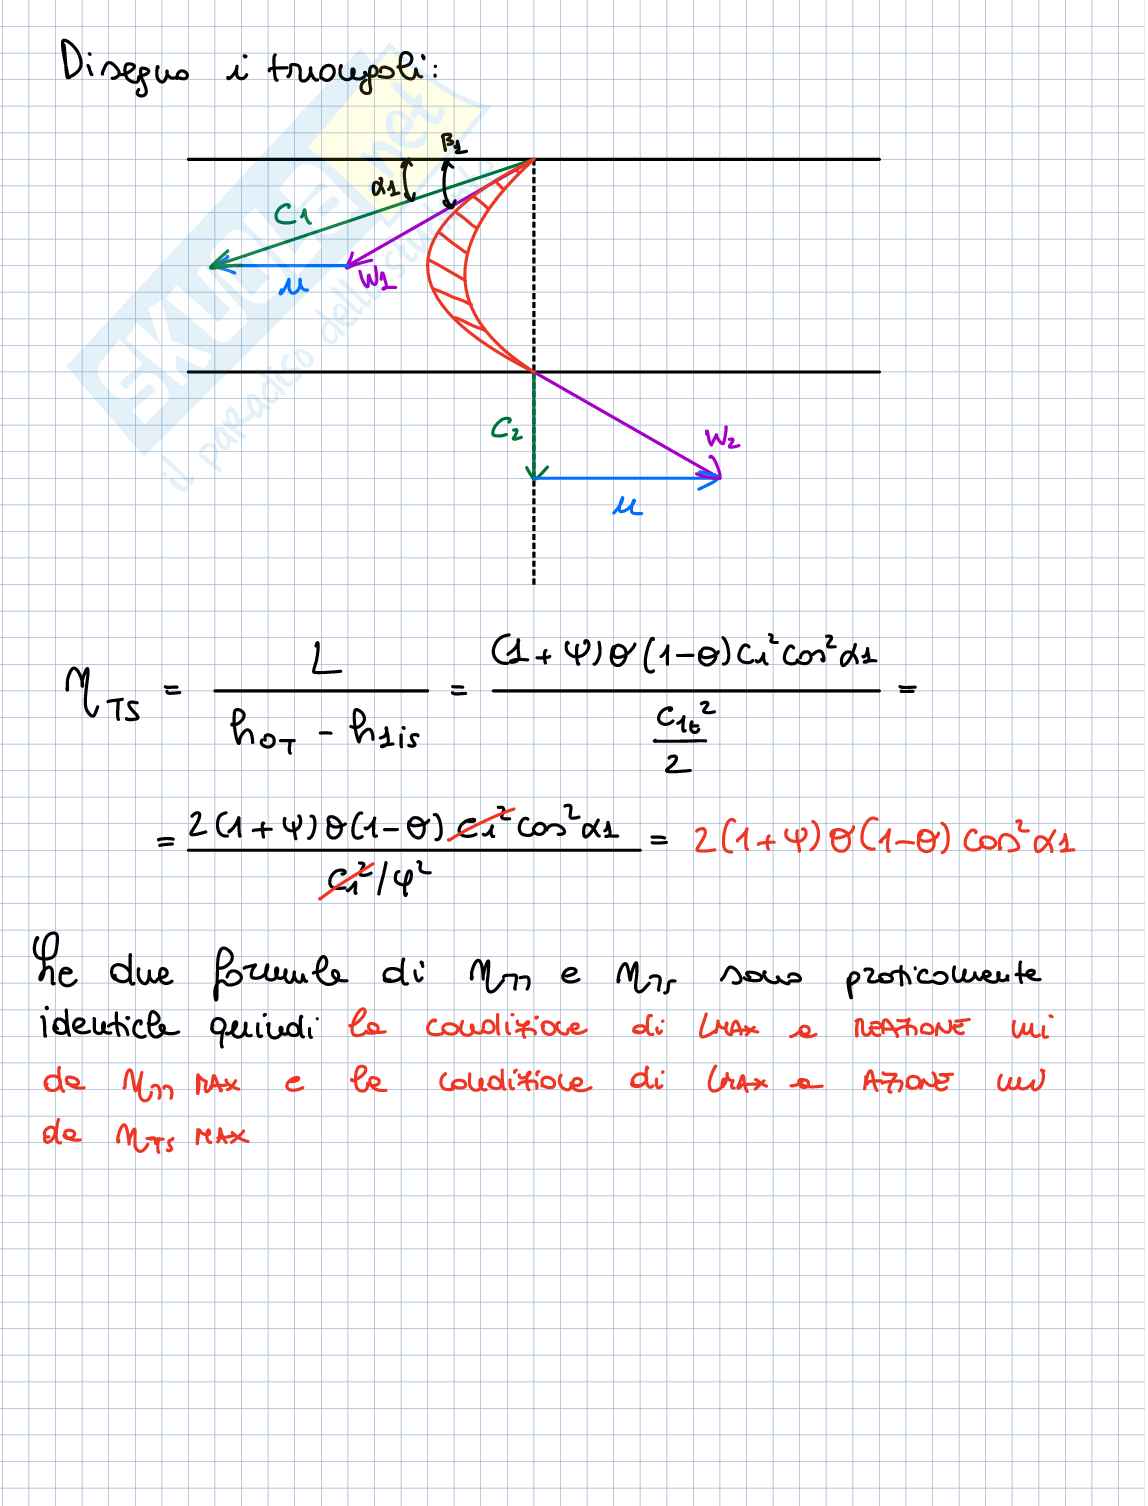 Disegno i triangoli:
β1
α1
C1
u
W1
C2
W2
u
η_TS = L / (h_0T - h_1is) = (1+ψ)θ(1-θ)C1²cos²α1 / (C1t²/2) =
= 2(1+ψ)θ(1-θ)C1²cos²α1 / (C1²/φ²) = 2(1+ψ)θ(1-θ)cos²α1
Le due formule di η_TT e η_TS sono praticamente
identiche quindi la condizione di LMAX a REAZIONE mi
da η_TT MAX e la condizione di LMAX a AZIONE mi
da η_TS MAX
SKUOLA.net
il paradiso dello